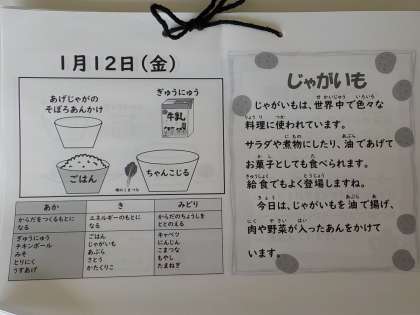 1月12日(金)
あげじゃがの
そぼろあんかけ
ぎゅうにゅう
牛乳
ごはん
ちゃんこじる
あか き みどり
からだをつくるもとに
なる
エネルギーのもとに
なる
からだのちょうしを
ととのえる
ぎゅうにゅう
チキンボール
みそ
とりにく
うすあげ
ごはん
じゃがいも
あぶら
さとう
かたくりこ
キャベツ
にんじん
こまつな
もやし
たまねぎ
じゃがいも
じゃがいもは、世界中で色々な
料理に使われています。
サラダや煮物にしたり、油であげて
お菓子としても食べられます。
給食でもよく登場しますね。
今日は、じゃがいもを油で揚げ、
肉や野菜が入ったあんをかけて
います。